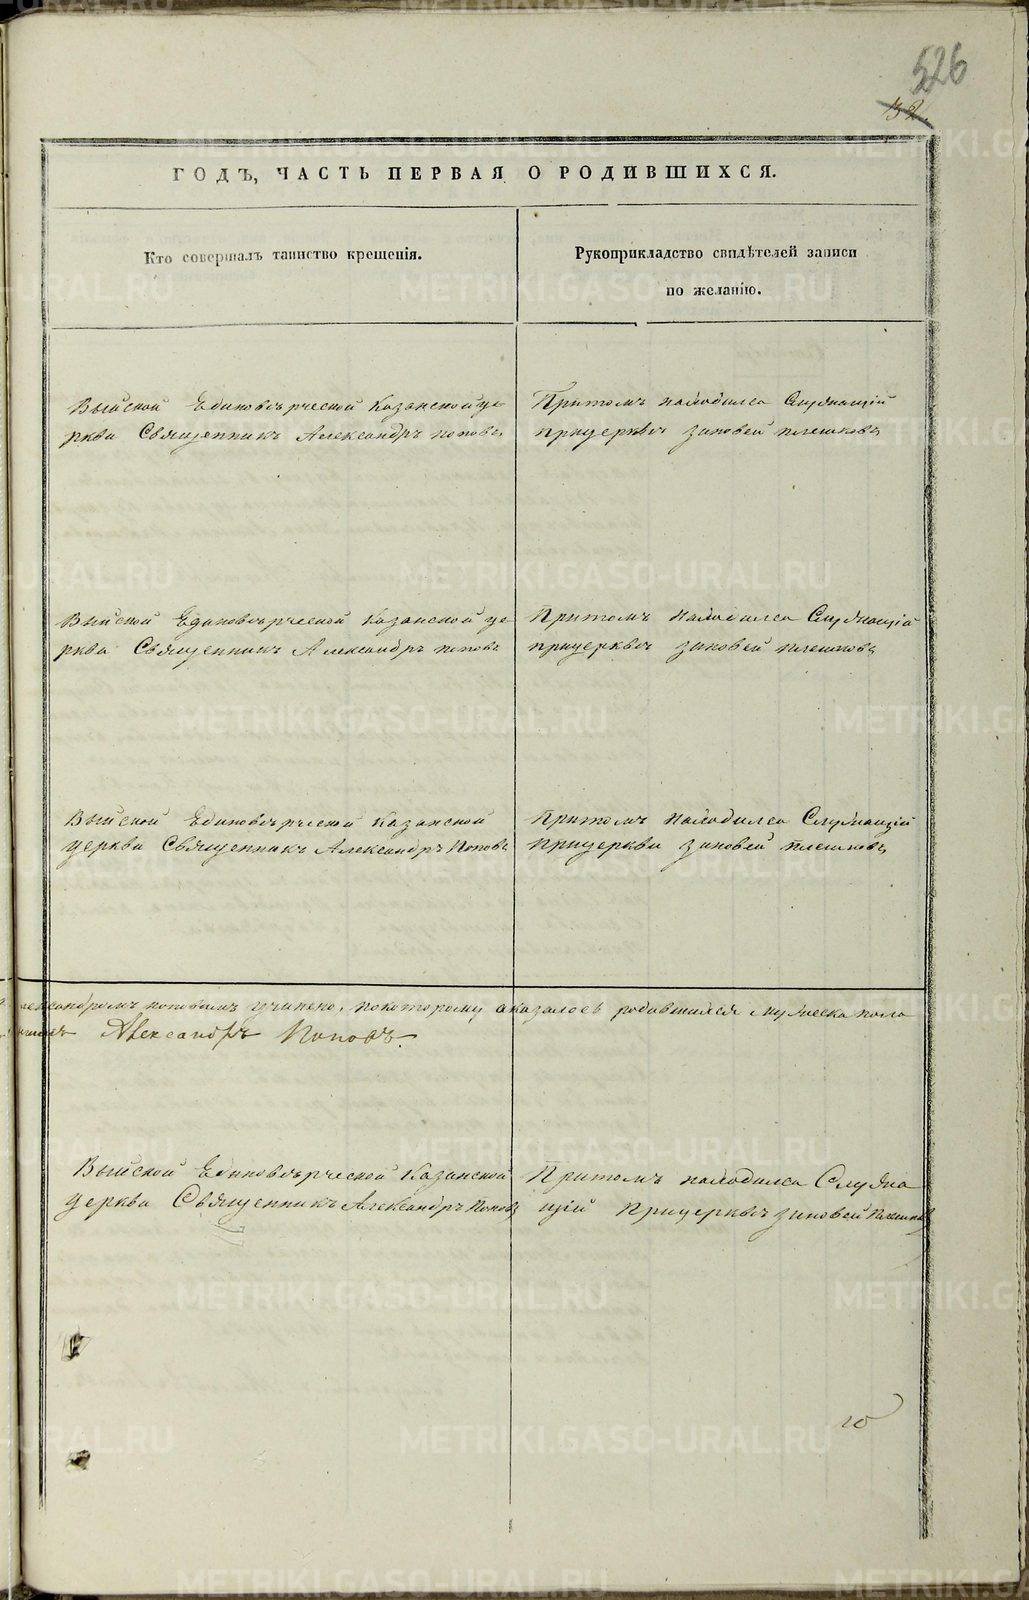 526
32.
ГОДЪ, ЧАСТЬ ПЕРВАЯ О РОДИВШИХСЯ.
Кто совершалъ таинство крещенія.
Рукоприкладство свидѣтелей записи
по желанію.
Выйской Единовѣрческой Казанской це
ркви Священникъ Александръ поповъ
Притомъ находился Служащій
прицерквѣ зиновей плешковъ
Выйской Единовѣрческой Казанской це
ркви Священникъ Александръ поповъ
Притомъ находился Служащій
прицерквѣ зиновей плешковъ
Выйской Единовѣрческой Казанской
церкви Священникъ Александръ Поповъ
Притомъ находился Служащій
прицеркви зиновей плешковъ
лександромъ поповымъ учинено, покоторому аказалось родившихся мужеска пола
Александръ Поповъ.
Выйской Единовѣрческой Казанской
церкви Священникъ Александръ Поповъ
Притомъ находился Служа
щій прицерквѣ зиновей Плешковъ
METRIKI.GASO-URAL.RU